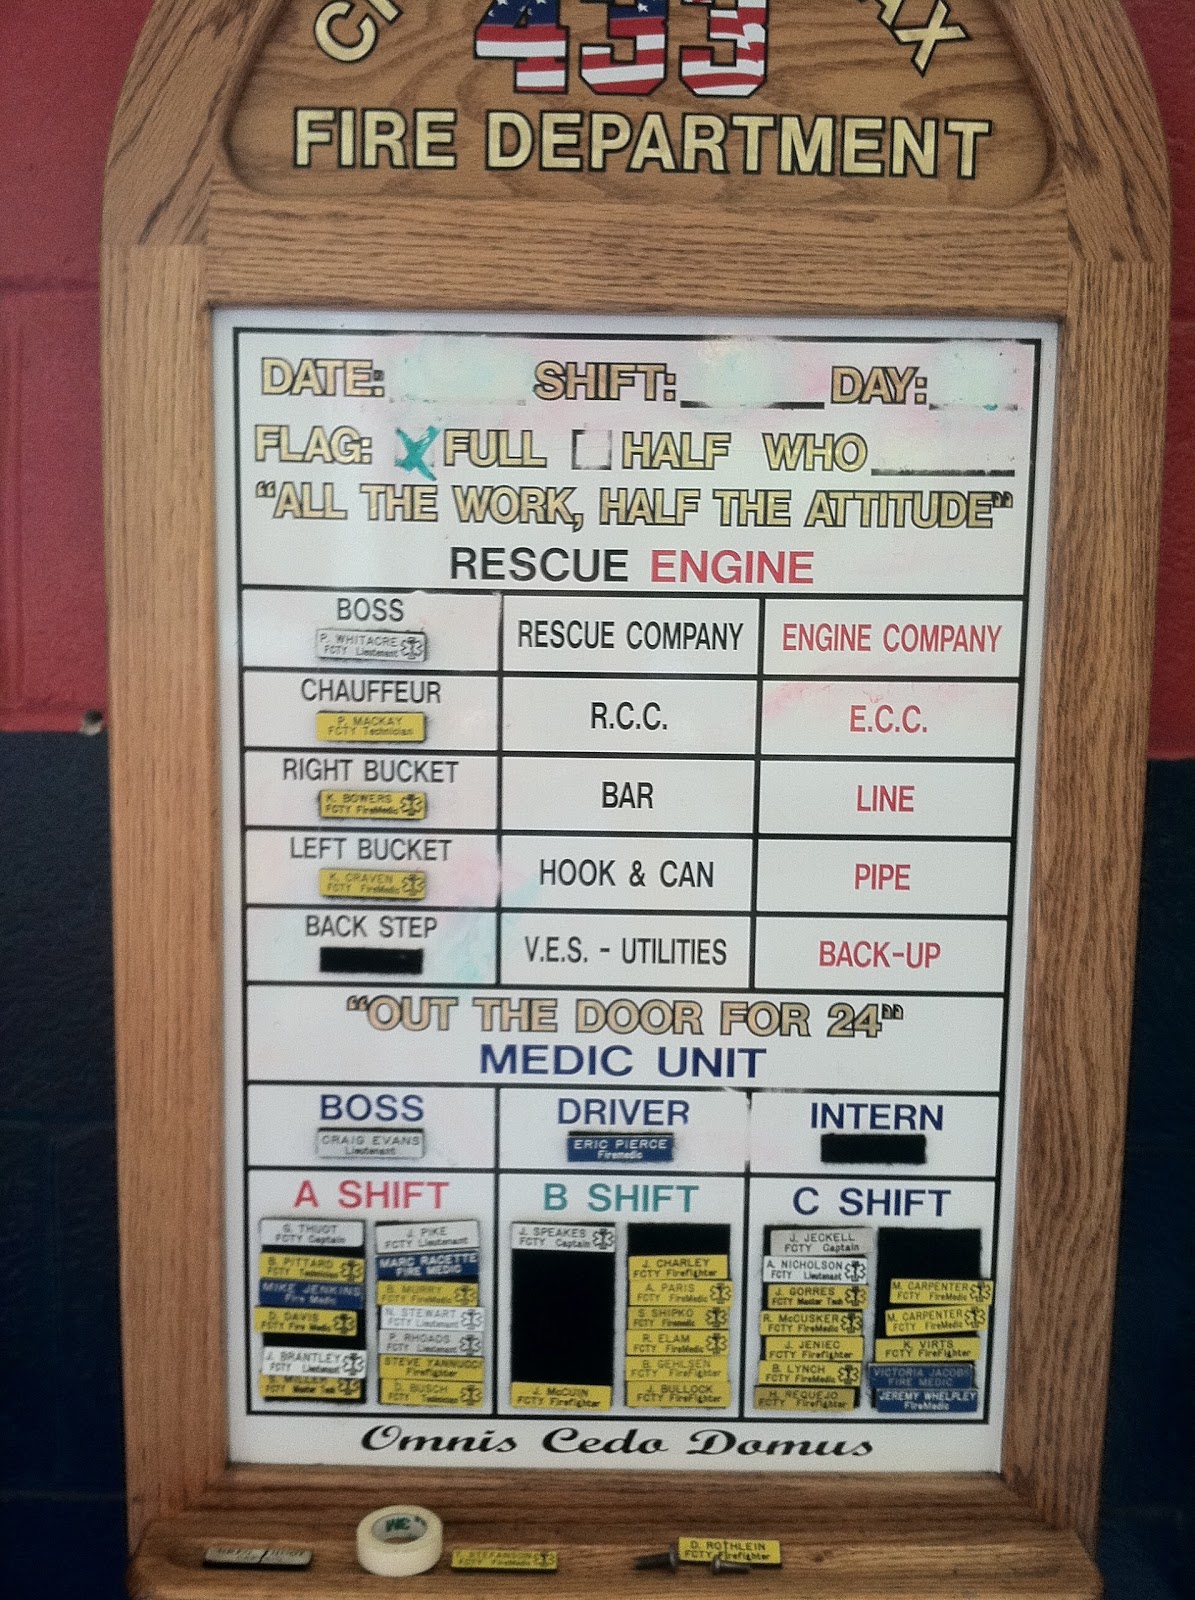 433
FIRE DEPARTMENT
DATE: SHIFT: DAY:
FLAG: X FULL HALF WHO
"ALL THE WORK, HALF THE ATTITUDE"
RESCUE ENGINE
BOSS
P. WHITACRE
FCTY Lieutenant
RESCUE COMPANY
ENGINE COMPANY
CHAUFFEUR
P. MACKAY
FCTY Technician
R.C.C.
E.C.C.
RIGHT BUCKET
K. BOWERS
FCTY FireMedic
BAR
LINE
LEFT BUCKET
K. CRAVEN
FCTY FireMedic
HOOK & CAN
PIPE
BACK STEP
V.E.S. - UTILITIES
BACK-UP
"OUT THE DOOR FOR 24"
MEDIC UNIT
BOSS
CRAIG EVANS
Lieutenant
DRIVER
ERIC PIERCE
Firemedic
INTERN
A SHIFT
S. THUOT
FCTY Captain
B. PITTARD
FCTY Technician
MIKE JENKINS
Fire Medic
D. DAVIS
FCTY Fire Medic
J. BRANTLEY
FCTY Lieutenant
S. MILLER
FCTY Master Tech
J. PIKE
FCTY Lieutenant
MARC RACETTE
FIRE MEDIC
B. MURRY
FCTY FireMedic
N. STEWART
FCTY Lieutenant
P. RHOADS
FCTY Lieutenant
STEVE YANNUCCI
Firefighter
D. BUSCH
FCTY Technician
B SHIFT
J. SPEAKES
FCTY Captain
J. McCUIN
FCTY Firefighter
J. CHARLEY
FCTY Firefighter
A. PARIS
FCTY FireMedic
S. SHIPKO
FCTY Firemedic
R. ELAM
FCTY FireMedic
B. GEHLSEN
FCTY Firefighter
J. BULLOCK
FCTY Firefighter
C SHIFT
J. JECKELL
FCTY Captain
A. NICHOLSON
FCTY Lieutenant
J. GORRES
FCTY Master Tech
R. McCUSKER
FCTY FireMedic
J. JENIEC
FCTY Firefighter
B. LYNCH
FCTY FireMedic
H. REQUEJO
FCTY Firefighter
M. CARPENTER
FCTY FireMedic
M. CARPENTER
FCTY FireMedic
K. VIRTS
FCTY Firefighter
VICTORIA JACOBS
FIRE MEDIC
JEREMY WHELPLEY
FireMedic
Omnis Cedo Domus
T. STEFANSON
FCTY FireMedic
D. ROTHLEIN
FCTY Firefighter